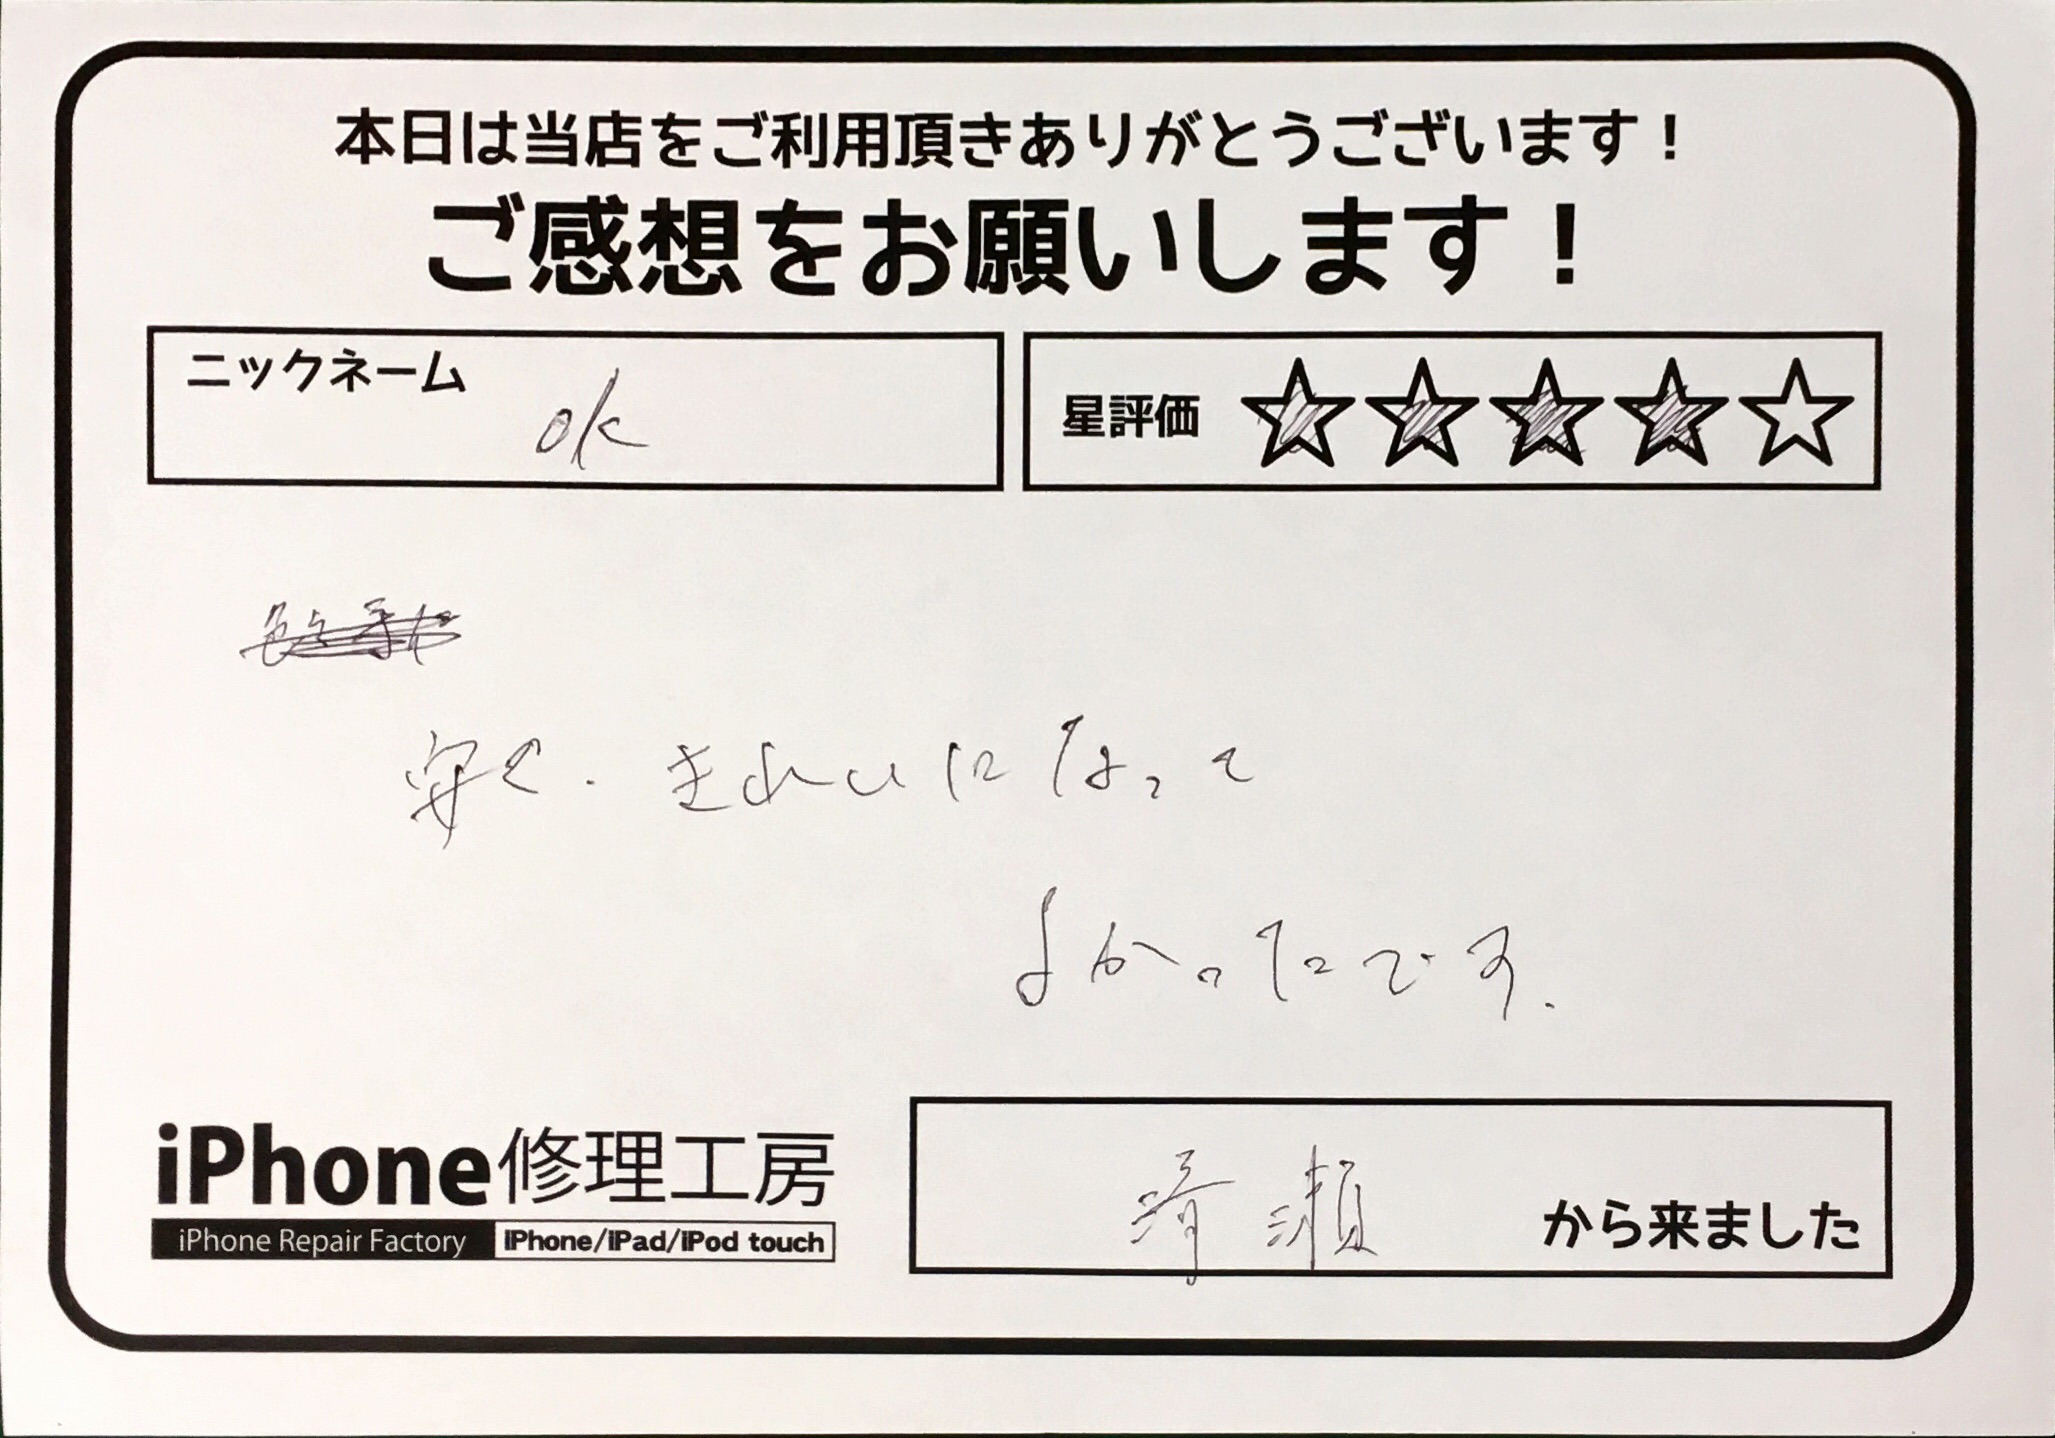 本日は当店をご利用頂きありがとうございます！
ご感想をお願いします！
ニックネーム ok
星評価 ★★★★☆
安く、きれいになって
よかったです。
iPhone修理工房
iPhone Repair Factory iPhone/iPad/iPod touch
瀬 から来ました